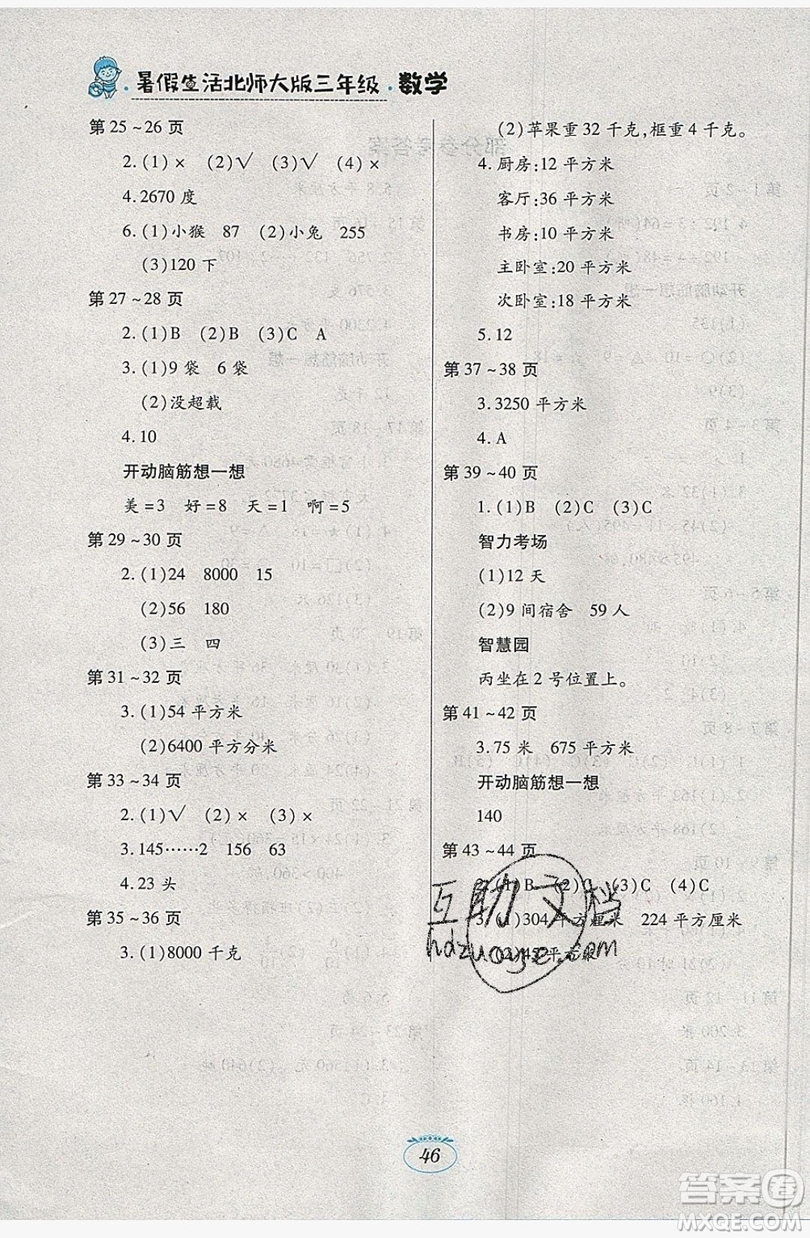 暑假生活北师大版三年级·数学
第25~26页
2.(1)× (2)√ (3)√ (4)×
4.2670度
6.(1)小猴 87 (2)小兔 255
(3)120下
第27~28页
2.(1)B (2)B (3)C A
3.(1)9袋 6袋
(2)没超载
4.10
开动脑筋想一想
美=3 好=8 天=1 啊=5
第29~30页
2.(1)24 8000 15
(2)56 180
(3)三 四
第31~32页
3.(1)54平方米
(2)6400平方分米
第33~34页
2.(1)√ (2)× (3)×
3.145……2 156 63
4.23头
第35~36页
3.(1)8000千克
(2)苹果重32千克,框重4千克。
4.厨房:12平方米
客厅:36平方米
书房:10平方米
主卧室:20平方米
次卧室:18平方米
5.12
第37~38页
3.3250平方米
4.A
第39~40页
1.(1)B (2)C (3)C
智力考场
(1)12天
(2)9间宿舍 59人
智慧园
丙坐在2号位置上。
第41~42页
3.75米 675平方米
开动脑筋想一想
140
第43~44页
2.(1)B (2)C (3)C (4)C
3.(1)304平方厘米 224平方厘米
互助文档
hdzuoye.com
46
答案圈
MXQE.COM